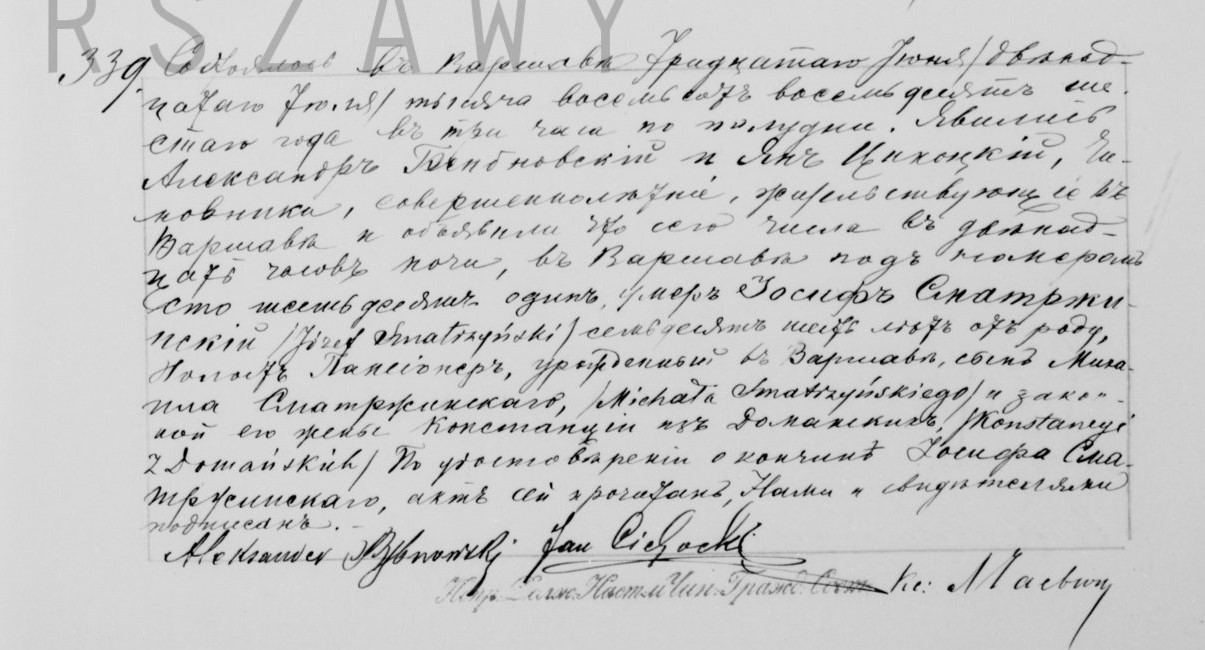 RSZAWY
339.
Состоялось въ Варшавѣ Тридцатаго Іюня/двѣнад-
цатаго Іюля/ тысяча восемьсотъ восемьдесятъ ше-
стаго года въ три часа по полудни. Явились
Александръ и Янъ Цихоцкій, Чи-
новники, совершеннолѣтніе, жительствующіе въ
Варшавѣ и объявили что сего числа въ двѣнад-
цать часовъ ночи, въ Варшавѣ подъ номеромъ
сто шестьдесятъ одинъ, умеръ Іосифъ Сматржи-
нскій /Józef Smatrzyński/ семьдесятъ шесть лѣтъ отъ роду,
Холостъ Пансіонеръ, урожденный въ Варшавѣ, сынъ Миха-
ила Сматржинскаго, /Michała Smatrzyńskiego/ и закон-
ной его жены Констанціи изъ Доманскихъ, /Konstancyi
z Domańskich/ По удостовѣреніи о кончинѣ Іосифа Сма-
тржинскаго, актъ сей прочитанъ, Нами и свидѣтелями
подписанъ. -
Aleksander Jan Cichocki
Испр. Долж. Наст. и Чин. Гражд. Сост. Кс: